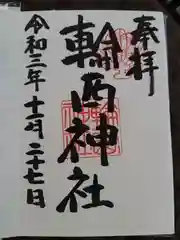 奉拝
輪西神社
令和三年十一月二十七日